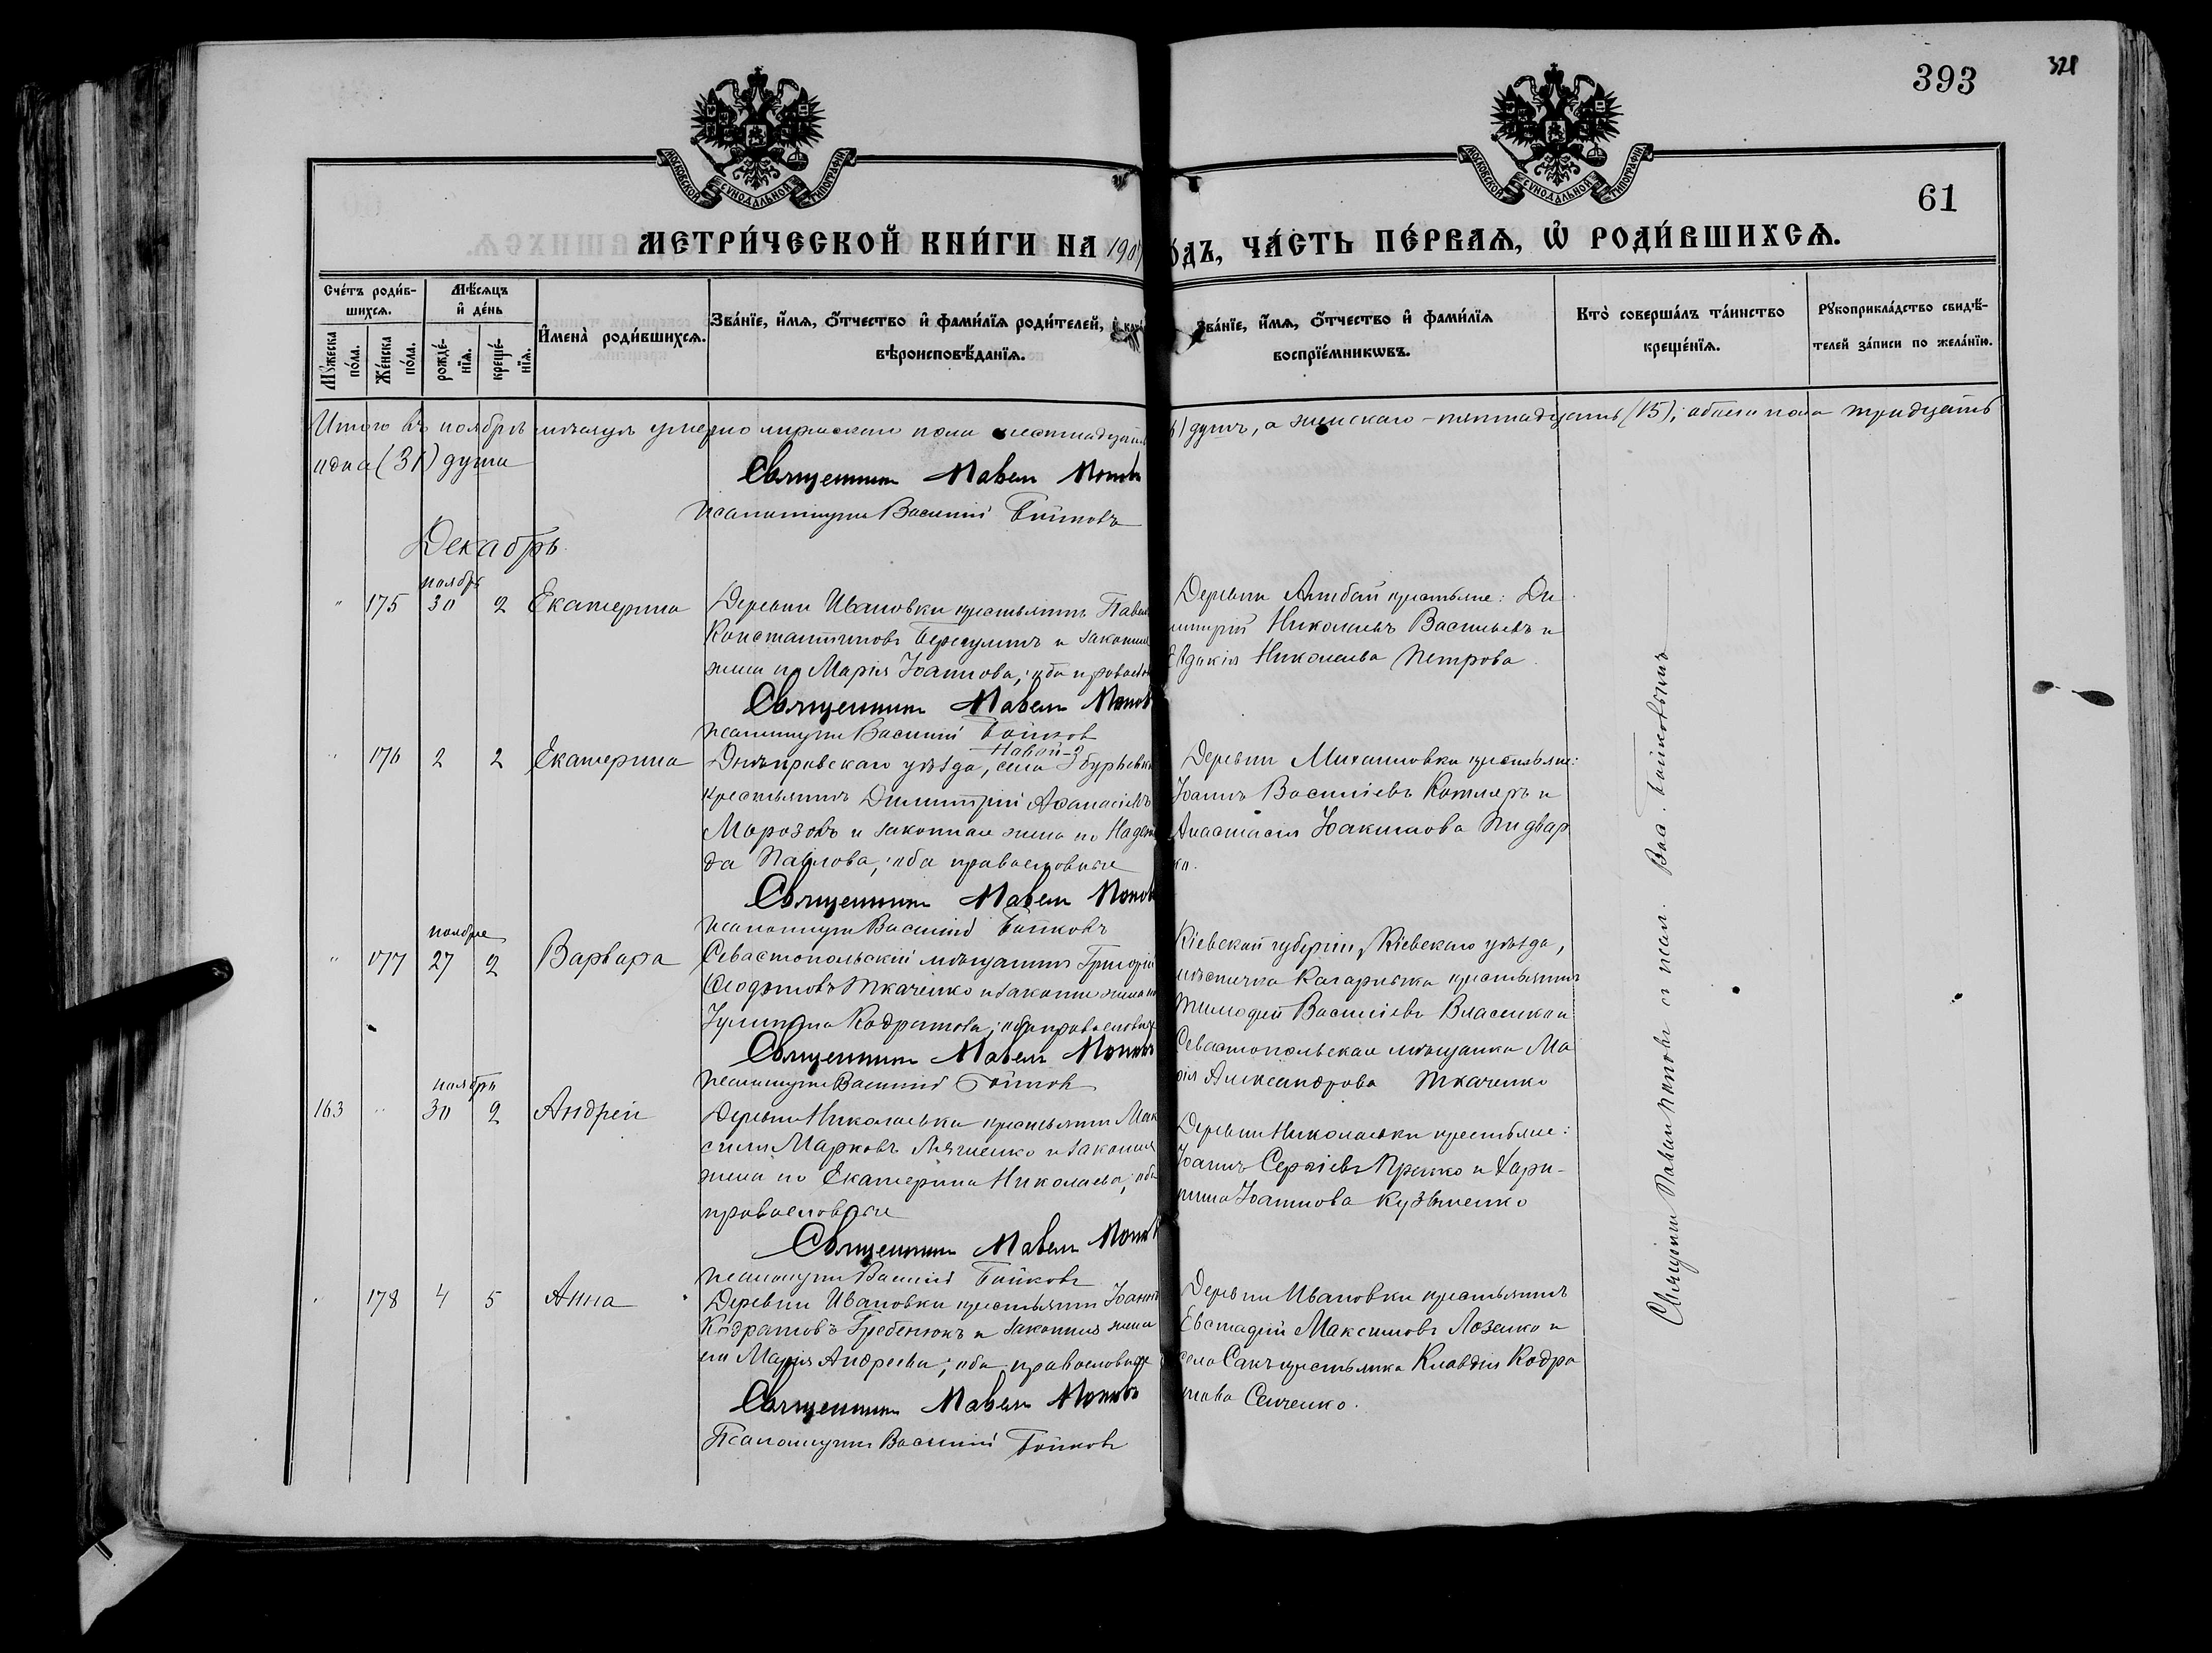 393
321
МОСКОВСКОЙ СѴНОДАЛЬНОЙ ТИПОГРАФІИ
МОСКОВСКОЙ СѴНОДАЛЬНОЙ ТИПОГРАФІИ
61
МЕТРИ́ЧЕСКОЙ КНИ́ГИ НА 190
О́ДЪ, ЧА́СТЬ ПЕ́РВАѦ, Ѽ РОДИ́ВШИХСѦ.
Сче́тъ роди́в-
шихсѧ.
Мꙋ́жеска по́ла.
Же́нска по́ла.
Мѣ́сѧцъ
и҆ де́нь
рожде́-нїѧ.
креще́-нїѧ.
И҆мена̀ роди́вшихсѧ.
Зва́нїе, и҆́мѧ, ѻ҆́тчество и҆ фами́лїѧ роди́телей,
вѣроисповѣ́данїѧ.
Зва́нїе, и҆́мѧ, ѻ҆́тчество и҆ фами́лїѧ
воспрїе́мникѡвъ.
Кто̀ соверша́лъ та́инство
креще́нїѧ.
Рꙋкоприкла́дство свидѣ́-
телей за́писи по жела́нїю.
Итого въ ноябрѣ мѣсяцѣ умерло мужскаго пола шестнадцать
) душъ, а женскаго - пятнадцать (15); обоего пола тридцать
одна (31) душа
Священникъ Павелъ Поповъ
Псаломщикъ Василій Бойковъ
Декабрь.
ноябрь
" 175 30 2 Екатерина
Деревни Ивановки крестьянинъ Павелъ
Константиновъ и законная
жена его Марія Іоаннова; оба православ
Священникъ Павелъ Поповъ
Псаломщикъ Василій Бойковъ
Деревни крестьяне: Ди
митрій Николаевъ Васильевъ и
Евдокія Николаева Петрова.
" 176 2 2 Екатерина
Новой-
Днѣпровскаго уѣзда, села Збурьевки
крестьянинъ Димитрій Аѳанасіевъ
Морозовъ и законная жена его Надеж
да Павлова; оба православные
Священникъ Павелъ Поповъ
Псаломщикъ Василій Бойковъ
Деревни Михайловки крестьяне:
Іоаннъ Василіевъ Котляръ и
Анастасія Іоакимова Пидвар
ко.
ноября
" 177 27 2 Варвара
Севастопольскій мѣщанинъ Григорій
Ѳеодотовъ Ткаченко и законн жена его
Іулитта Кодратова; оба православные
Священникъ Павелъ Поповъ
Псаломщикъ Василій Бойковъ
Кіевской губерніи, Кіевскаго уѣзда,
мѣстечка Кагарлыка крестьянинъ
Тимоѳей Василіевъ Власенко и
Севастопольская мѣщанка Ма
рія Александрова Ткаченко
ноябрь
163 " 30 2 Андрей
Деревни Николаевки крестьянинъ Мак
симъ Марковъ и законная
жена его Екатерина Николаева; оба
православные
Священникъ Павелъ Поповъ
Псаломщикъ Василій Бойковъ
Деревни Николаевки крестьяне:
Іоаннъ Сергіевъ и Хари-
тина Іоаннова Кузьменко
" 178 4 5 Анна
Деревни Ивановки крестьянинъ Іоаннъ
Кодратовъ Гребенюкъ и законная жена
его Марія Андреева; оба православные
Священникъ Павелъ Поповъ
Псаломщикъ Василій Бойковъ
Деревни Ивановки крестьянинъ
Евстафій Максимовъ Лозенко и
села Сакъ крестьянка Клавдія Кодра
това Сенченко.
Священникъ Павелъ Поповъ съ псал. Вас. Бойковымъ